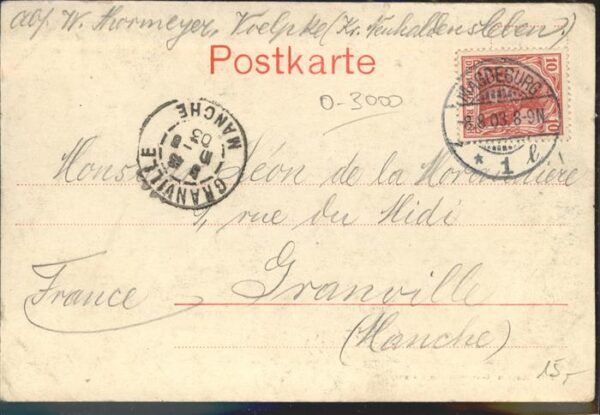 Abs. W. Thormeyer, Voelpke (Kr. Neuhaldensleben.)
Postkarte
O-3000
MAGDEBURG
8.8.03. 8-9N.
* 1 l
10
10
GRANVILLE
MANCHE
03
Monsieur Léon de la Morandière
rue du Midi
France
Granville
(Manche)
15,-